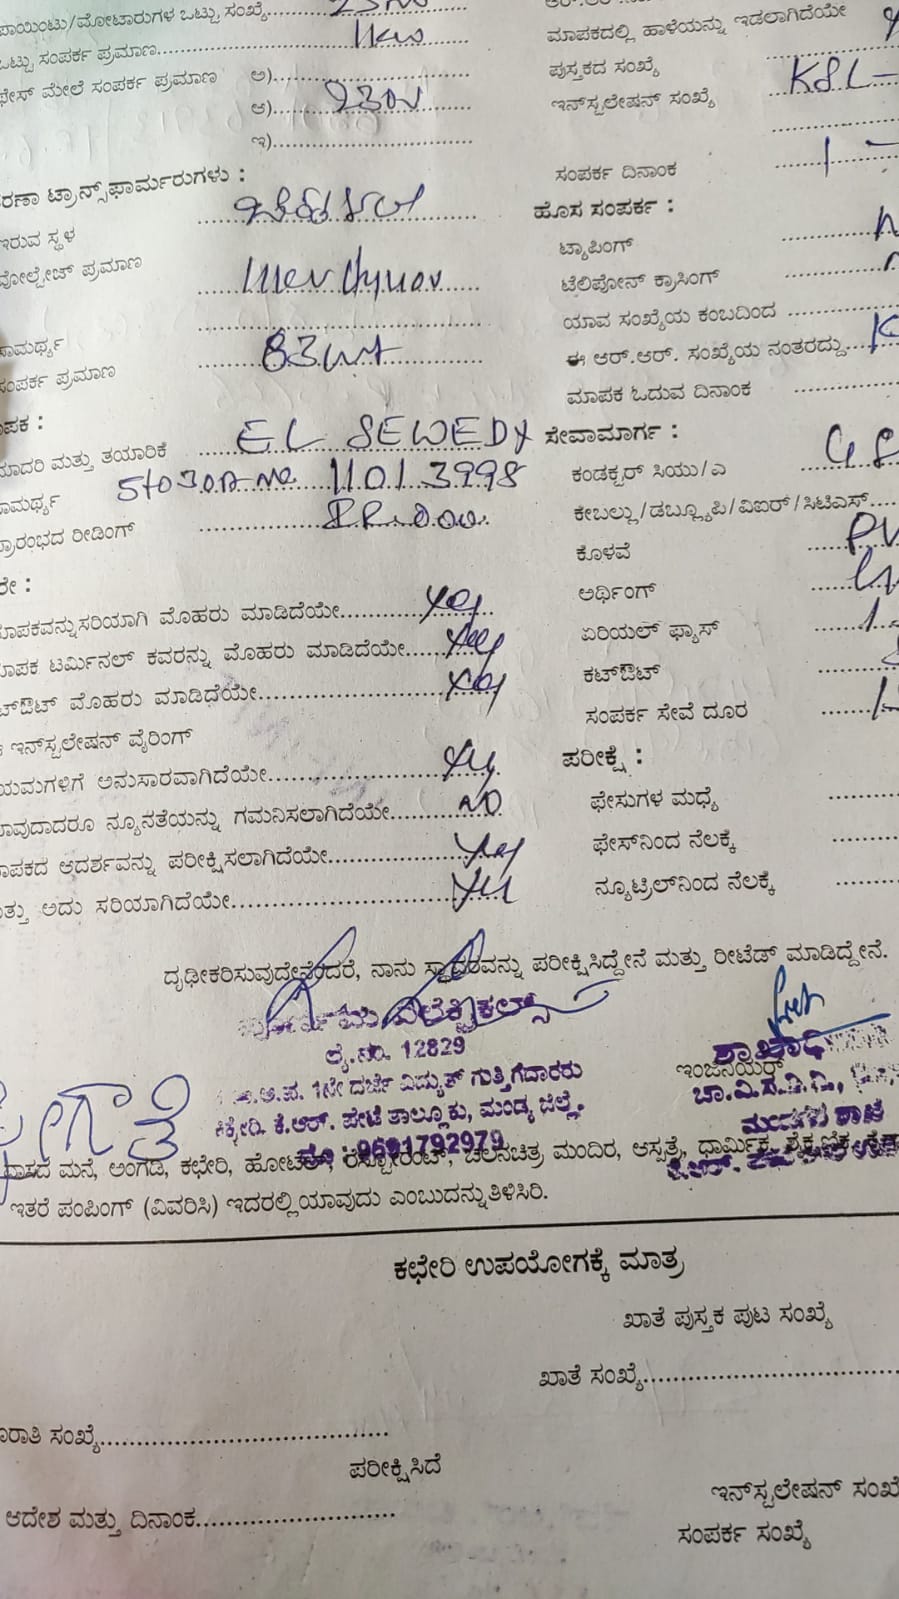 ಪಾಯಿಂಟು/ಮೋಟಾರುಗಳ ಒಟ್ಟು ಸಂಖ್ಯೆ
ಒಟ್ಟು ಸಂಪರ್ಕ ಪ್ರಮಾಣ 1KW
ಫೇಸ್ ಮೇಲೆ ಸಂಪರ್ಕ ಪ್ರಮಾಣ ಅ)
ಆ) 230V
ಇ)
ಮಾಪಕದಲ್ಲಿ ಹಾಳೆಯನ್ನು ಇಡಲಾಗಿದೆಯೇ
ಪುಸ್ತಕದ ಸಂಖ್ಯೆ
ಇನ್‌ಸ್ಟಲೇಷನ್ ಸಂಖ್ಯೆ KSL-
ಸಂಪರ್ಕ ದಿನಾಂಕ
ರಣಾ ಟ್ರಾನ್ಸ್‌ಫಾರ್ಮರುಗಳು :
ಇರುವ ಸ್ಥಳ
ವೋಲ್ಟೇಜ್ ಪ್ರಮಾಣ
ಸಾಮರ್ಥ್ಯ
ಸಂಪರ್ಕ ಪ್ರಮಾಣ
ಹೊಸ ಸಂಪರ್ಕ :
ಟ್ಯಾಪಿಂಗ್
ಟೆಲಿಪೋನ್ ಕ್ರಾಸಿಂಗ್
ಯಾವ ಸಂಖ್ಯೆಯ ಕಂಬದಿಂದ
ಈ ಆರ್.ಆರ್. ಸಂಖ್ಯೆಯ ನಂತರದ್ದು
ಮಾಪಕ ಓದುವ ದಿನಾಂಕ
ಪಕ :
ಮಾದರಿ ಮತ್ತು ತಯಾರಿಕೆ EL SEWEDY
ಸಾಮರ್ಥ್ಯ 11013998
ಪ್ರಾರಂಭದ ರೀಡಿಂಗ್
ಸೇವಾಮಾರ್ಗ :
ಕಂಡಕ್ಟರ್ ಸಿಯು/ಎ
ಕೇಬಲ್ಲು/ಡಬ್ಲ್ಯೂಪಿ/ವಿಐಆರ್/ಸಿಟಿಎಸ್
ಕೊಳವೆ PV
ಅರ್ಥಿಂಗ್
ಏರಿಯಲ್ ಫ್ಯಾಸ್
ಕಟ್‌ಔಟ್
ಸಂಪರ್ಕ ಸೇವೆ ದೂರ
ರೇ :
ಮಾಪಕವನ್ನು ಸರಿಯಾಗಿ ಮೊಹರು ಮಾಡಿದೆಯೇ yes
ಮಾಪಕ ಟರ್ಮಿನಲ್ ಕವರನ್ನು ಮೊಹರು ಮಾಡಿದೆಯೇ yes
ಕಟ್‌ಔಟ್ ಮೊಹರು ಮಾಡಿದೆಯೇ yes
ಇನ್‌ಸ್ಟಲೇಷನ್ ವೈರಿಂಗ್
ಯಮಗಳಿಗೆ ಅನುಸಾರವಾಗಿದೆಯೇ yes
ಯಾವುದಾದರೂ ನ್ಯೂನತೆಯನ್ನು ಗಮನಿಸಲಾಗಿದೆಯೇ NO
ಮಾಪಕದ ಆದರ್ಶವನ್ನು ಪರೀಕ್ಷಿಸಲಾಗಿದೆಯೇ yes
ಮತ್ತು ಅದು ಸರಿಯಾಗಿದೆಯೇ yes
ಪರೀಕ್ಷೆ :
ಫೇಸುಗಳ ಮಧ್ಯೆ
ಫೇಸ್‌ನಿಂದ ನೆಲಕ್ಕೆ
ನ್ಯೂಟ್ರಿಲ್‌ನಿಂದ ನೆಲಕ್ಕೆ
ದೃಢೀಕರಿಸುವುದೇನೆಂದರೆ, ನಾನು ಸ್ಥಾವರವನ್ನು ಪರೀಕ್ಷಿಸಿದ್ದೇನೆ ಮತ್ತು ರೀಟೆಡ್ ಮಾಡಿದ್ದೇನೆ.
ಎಲೆಕ್ಟ್ರಿಕಲ್ಸ್
ಲೈ.ನಂ. 12829
1ನೇ ದರ್ಜೆ ವಿದ್ಯುತ್ ಗುತ್ತಿಗೆದಾರರು
ಕಿಕ್ಕೇರಿ. ಕೆ.ಆರ್. ಪೇಟೆ ತಾಲ್ಲೂಕು, ಮಂಡ್ಯ ಜಿಲ್ಲೆ.
ಮೊ : 9691792979
ಇಂಜಿನಿಯರ್
ಚಾ.ವಿ.ಸ.ನಿ.ನಿ.,
ವಾಸದ ಮನೆ, ಅಂಗಡಿ, ಕಛೇರಿ, ಹೋಟೆಲ್, ರೆಸ್ಟೋರೆಂಟ್, ಚಲನಚಿತ್ರ ಮಂದಿರ, ಆಸ್ಪತ್ರೆ, ಧಾರ್ಮಿಕ, ಶೈಕ್ಷಣಿಕ,
ಇತರೆ ಪಂಪಿಂಗ್ (ವಿವರಿಸಿ) ಇದರಲ್ಲಿ ಯಾವುದು ಎಂಬುದನ್ನು ತಿಳಿಸಿರಿ.
ಕಛೇರಿ ಉಪಯೋಗಕ್ಕೆ ಮಾತ್ರ
ಖಾತೆ ಪುಸ್ತಕ ಪುಟ ಸಂಖ್ಯೆ
ಖಾತೆ ಸಂಖ್ಯೆ
ರಾತಿ ಸಂಖ್ಯೆ
ಪರೀಕ್ಷಿಸಿದೆ
ಆದೇಶ ಮತ್ತು ದಿನಾಂಕ
ಇನ್‌ಸ್ಟಲೇಷನ್ ಸಂಖ್ಯೆ
ಸಂಪರ್ಕ ಸಂಖ್ಯೆ